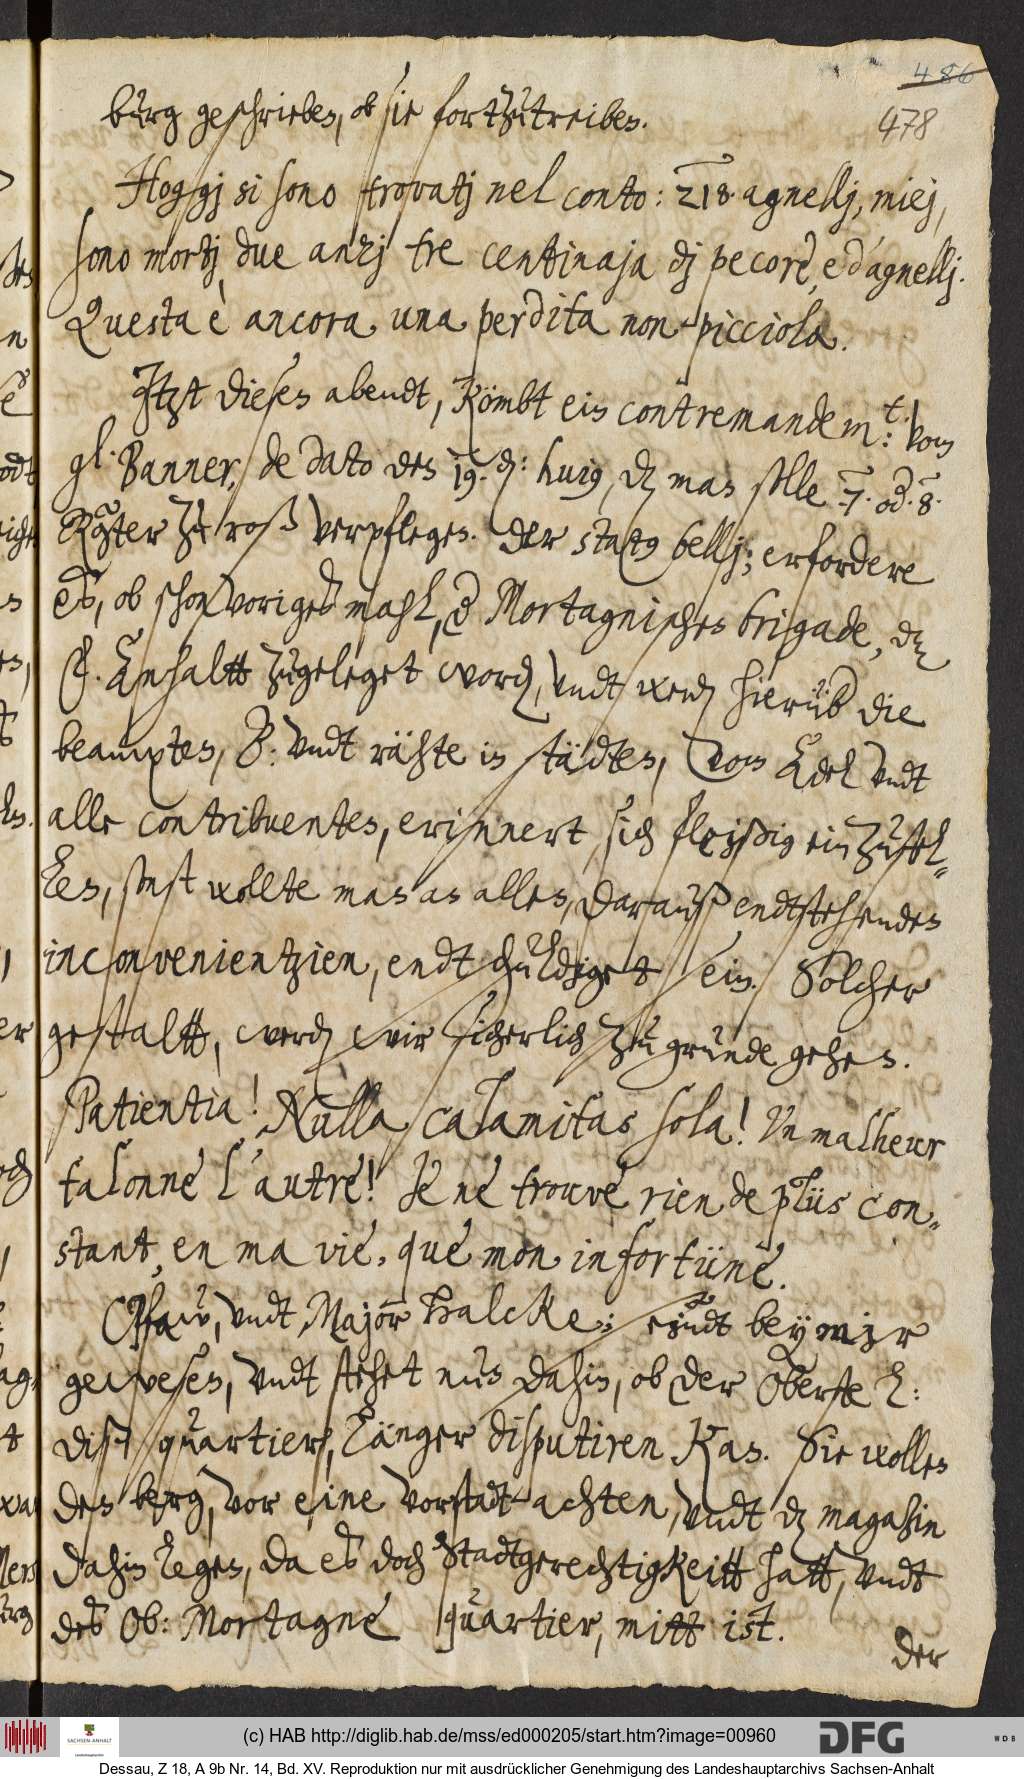 486
478
burg geschrieben, ob sie fortzutreiben.
Hoggj si sono trovatj nel conto: 218 agnellj, miej,
sono mortj, due anzj tre centinaja dj pecore, e d'agnellj.
Questa è ancora, una perdita non picciola.
Itzt diesen abendt, kömbt ein contremandem.t: vom
gl. Banner, de dato den 19. d: huius, dz man solle 7. od. 8.
Rgter zu roß verpflegen. Der status bellj; erfordere
es, ob schon voriges mahl, d Mortagnischen brigade, dz
F. Anhaltt zugeleget word, undt werd hierüb die
beampten, B: undt rähte in städten, vom Adel undt
alle contribuenten, erinnert, sich fleißig einzustel-
len, sonst wollte man an allen, darauß, endtstehenden
inconvenientzien, endtschuldiget sein. Solcher
gestaltt, werd wir sicherlich zu grunde gehen.
Patientia! Nulla calamitas sola! Un malheur
talonne l'autre! Je ne trouve rien de plüs con-
stant, en ma vie, que mon infortüne.
Pfaw, undt Major Halcke; seindt bey mir
gewesen, undt stehet nun dahin, ob der Oberste L:
diß quartier, länger disputiren kan. Sie wollen
den berg, vor eine vorstadt achten, undt dz magasin
dahin legen, da es doch Stadtgerechtigkeitt hatt, undt
des Ob: Mortagne quartier, mitt ist.
der
(c) HAB http://diglib.hab.de/mss/ed000205/start.htm?image=00960
SACHSEN-ANHALT
DFG
WDB
Dessau, Z 18, A 9b Nr. 14, Bd. XV. Reproduktion nur mit ausdrücklicher Genehmigung des Landeshauptarchivs Sachsen-Anhalt